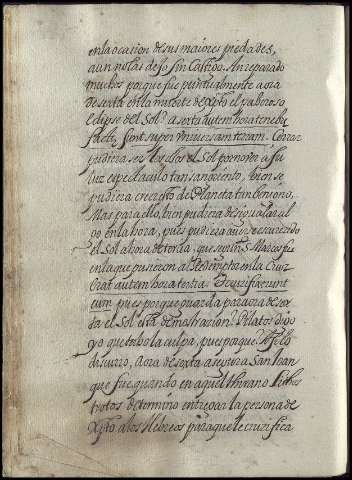 en la ocasion de sus maiores piedades,
aun no las dejo sin Castigo. An reparado
muchos porque fue puntualmente a ora
de sexta en la muerte de Xpto el pavoroso
Eclipse del Sol? a sexta autem hora tenebræ
factæ sunt super universam terram. Cerrar
pudiera ser los ojos el Sol por no ver a su
luz espectaculo tan sangriento, bien se
pudiera creer esto de Planeta tan benigno.
Mas para esto, bien pudiera desigualar al
go en la hora, pues pudiera aver escurecido
el Sol a hora de tercia, que segun S. Marcos fue
en la que pusieron al Redemptor en la Cruz
Erat autem hora tertia & crucifixerunt
eum, pues porque guarda para ora de sex
ta el Sol esta demostracion? Pilatos digo
yo que tubo la culpa, pues porque
discurro, A ora de sexta asegura San Juan
que fue quando en aquel tirano
trotos determino entregar la persona de
Xpto a los Hebreos para que le crucifica